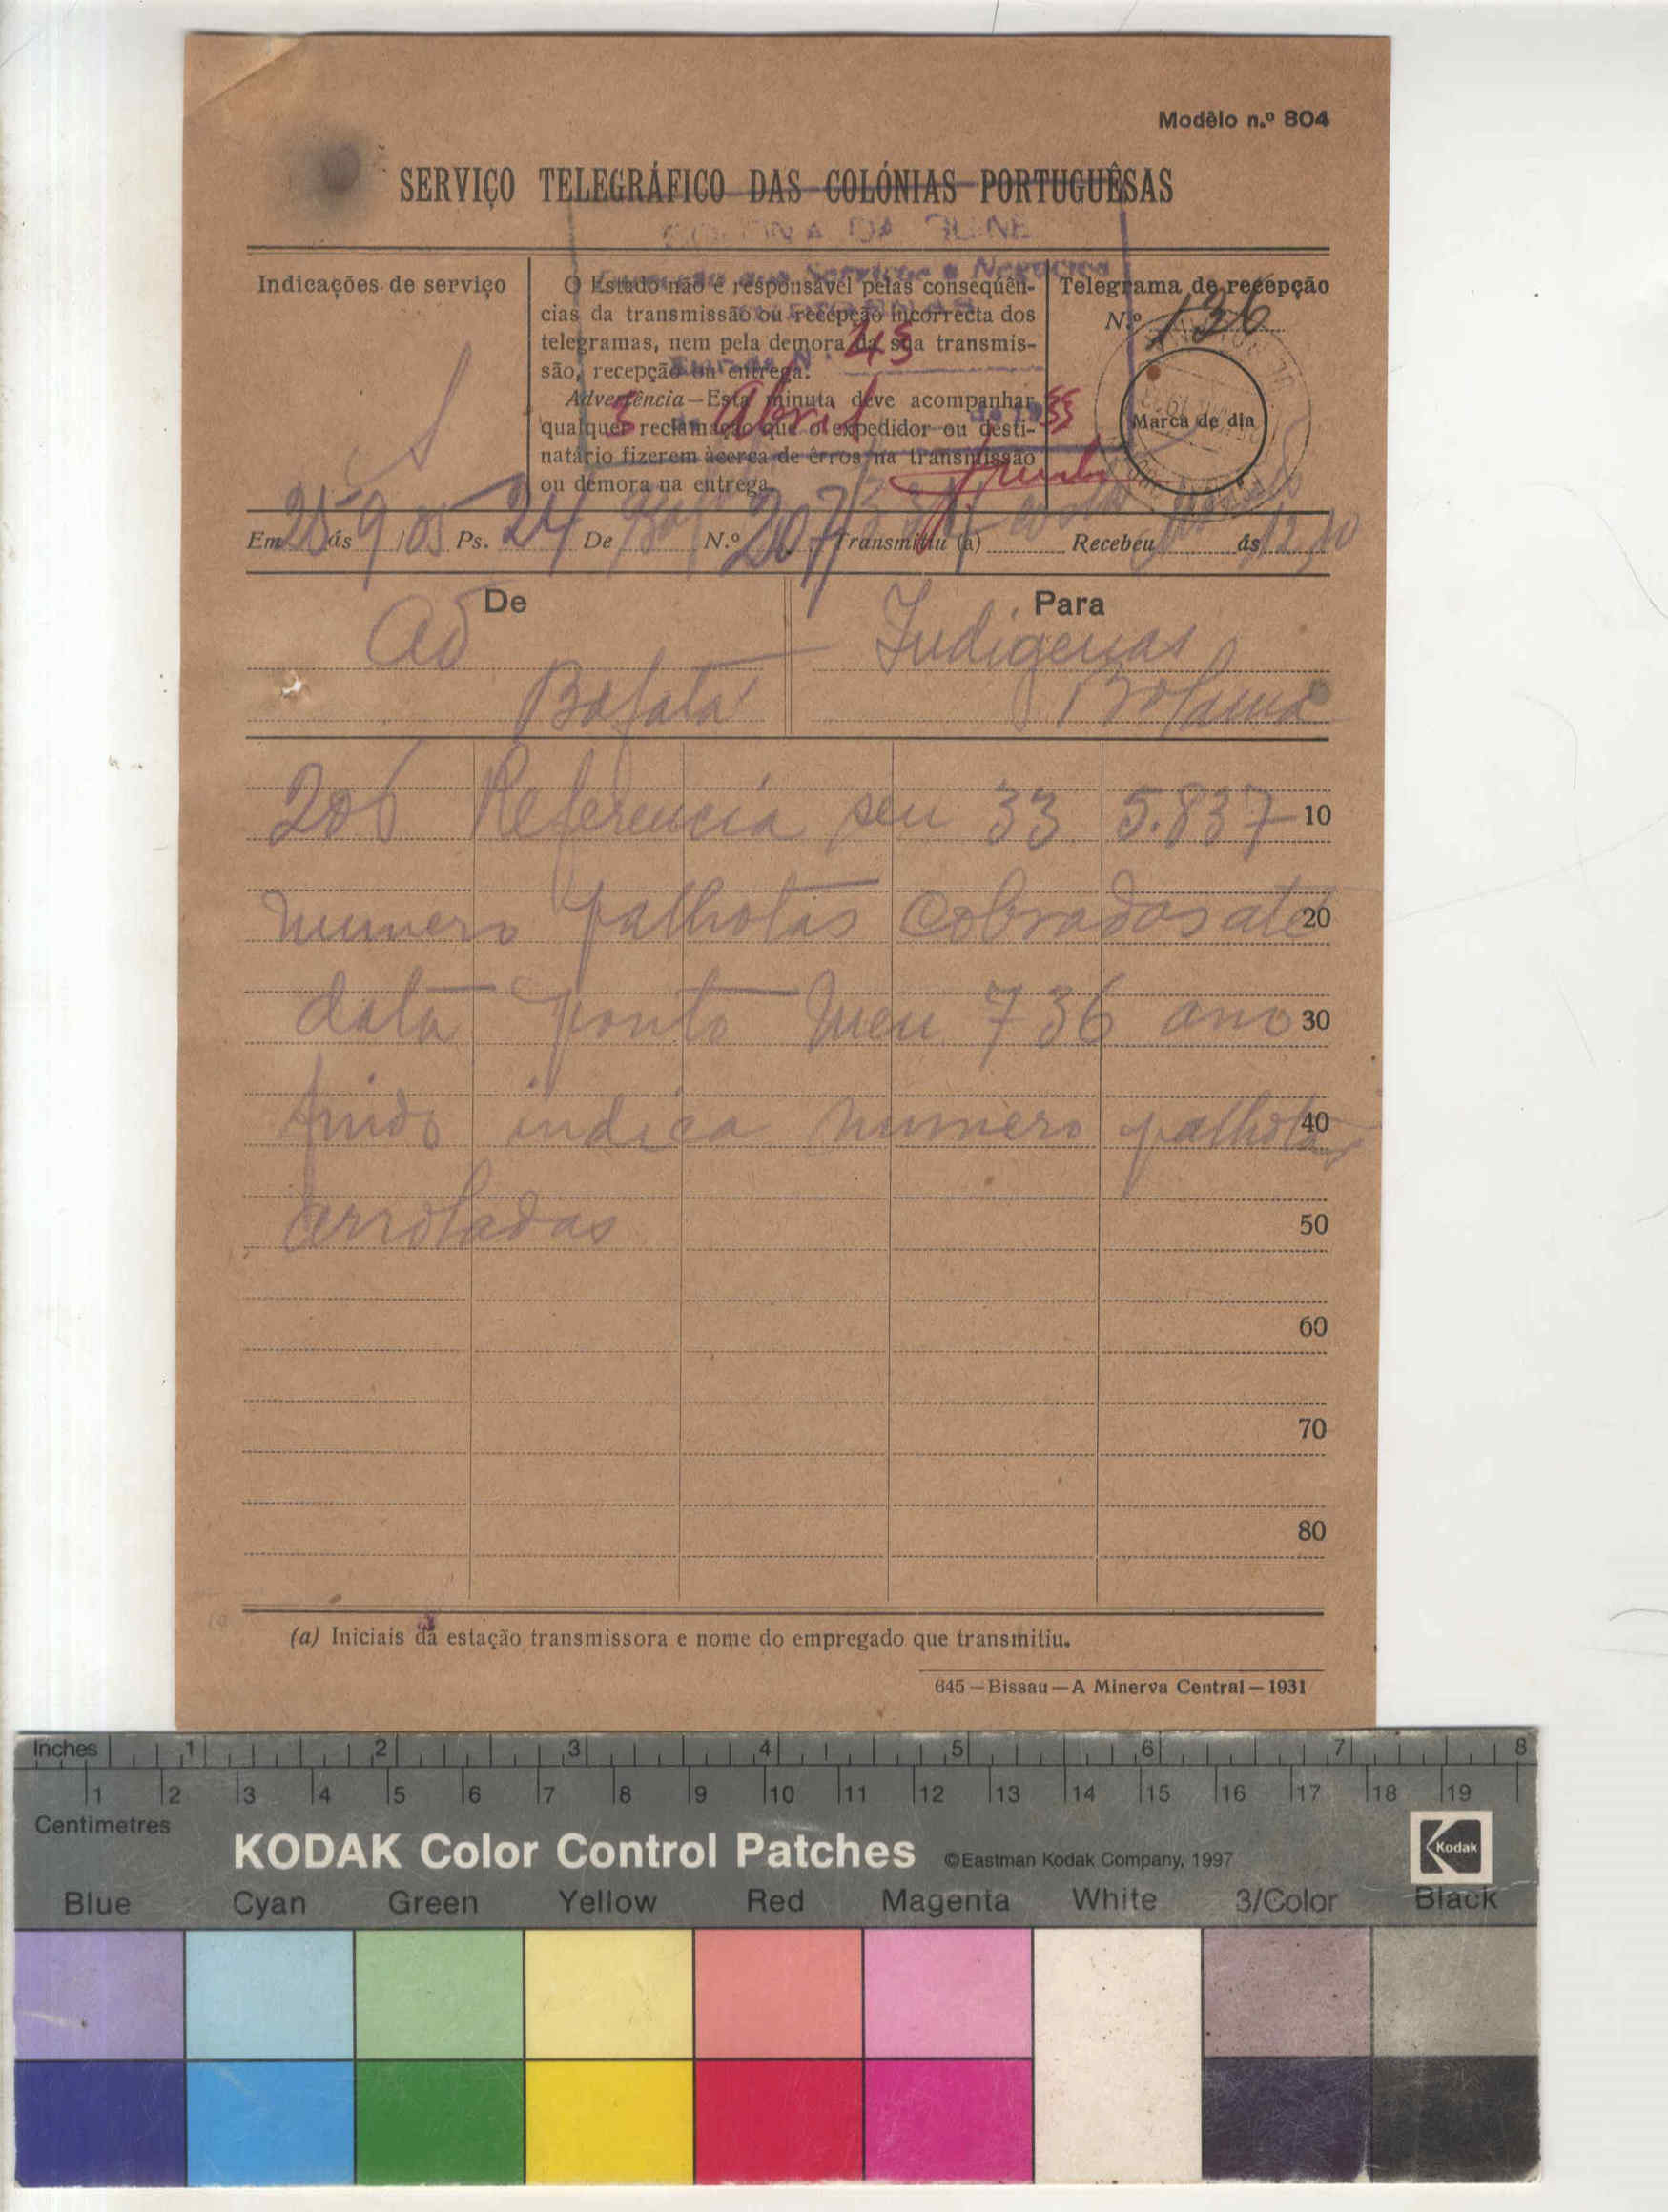 Modêlo n.º 804
SERVIÇO TELEGRÁFICO DAS COLÓNIAS PORTUGUÊSAS
Indicações de serviço
O Estado não é responsável pelas conseqüên-
cias da transmissão ou recepção incorrecta dos
telegramas, nem pela demora da sua transmis-
são, recepção ou entrega.
Advertência—Esta minuta deve acompanhar
qualquer reclamação que o expedidor ou desti-
natário fizerem àcerca de êrros na transmissão
ou demora na entrega.
Telegrama de recepção
N.º 136
Marca de dia
43
3 Abril 33
Em 28 ás 9 Ps. 24 De N.º 207 Transmitiu (a) Recebeu ás 12,10
De
Para
Ad
Indigenas
Bafatá
Bolama
206 Referencia seu 33 5.837 10
numero palhotas cobradas até 20
data ponto Meu 736 ano 30
findo indica numero palhotas 40
arroladas
50
60
70
80
(a) Iniciais da estação transmissora e nome do empregado que transmitiu.
645—Bissau—A Minerva Central—1931
Inches 1 2 3 4 5 6 7 8
1 2 3 4 5 6 7 8 9 10 11 12 13 14 15 16 17 18 19
Centimetres
KODAK Color Control Patches ©Eastman Kodak Company, 1997 Kodak
Blue Cyan Green Yellow Red Magenta White 3/Color Black